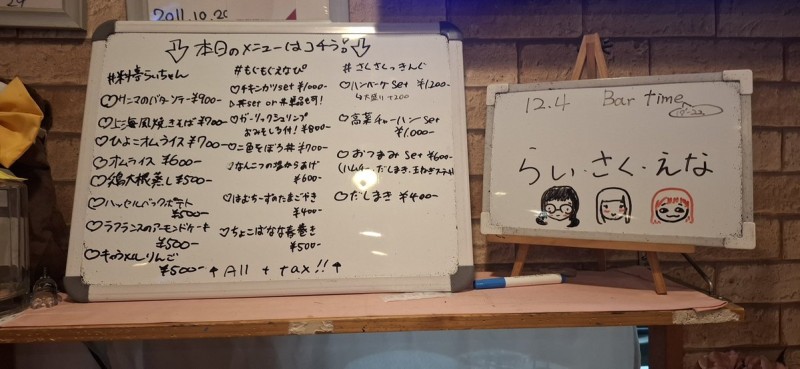 29
2011.10.20
本日のメニューはコチラ!
#料時らいちゃん
♡サーモンのバターソテー ¥900-
♡上海風焼きそば ¥700-
♡ひよこオムライス ¥700-
♡オムライス ¥600-
♡鶏大根蒸し ¥500-
♡ハッセルバックポテト
¥500-
♡ラフランスのアーモンドケーキ
¥500-
♡キャラメルりんご
¥500-
#もぐもぐえなぴ
♡チキンカツset ¥1000-
丼set or 単品も可!
♡ガーリックシュリンプ
おみそしる付! ¥800-
♡二色そぼろ丼 ¥700-
♡なんこつの塩からあげ
¥600-
♡はむちーずのたまごやき
¥400-
♡ちょこばなな春巻き
¥500-
#さくさくっきんぐ
♡ハンバーグ set ¥1200-
↳大盛り +200
♡高菜チャーハン set
¥1,000-
♡おつまみ set ¥600-
(ハムカツ・だしまき・玉ねぎスライス)
♡だしまき ¥400-
↑ All + tax!! ↑
12.4 Bar time
らい・さく・えな